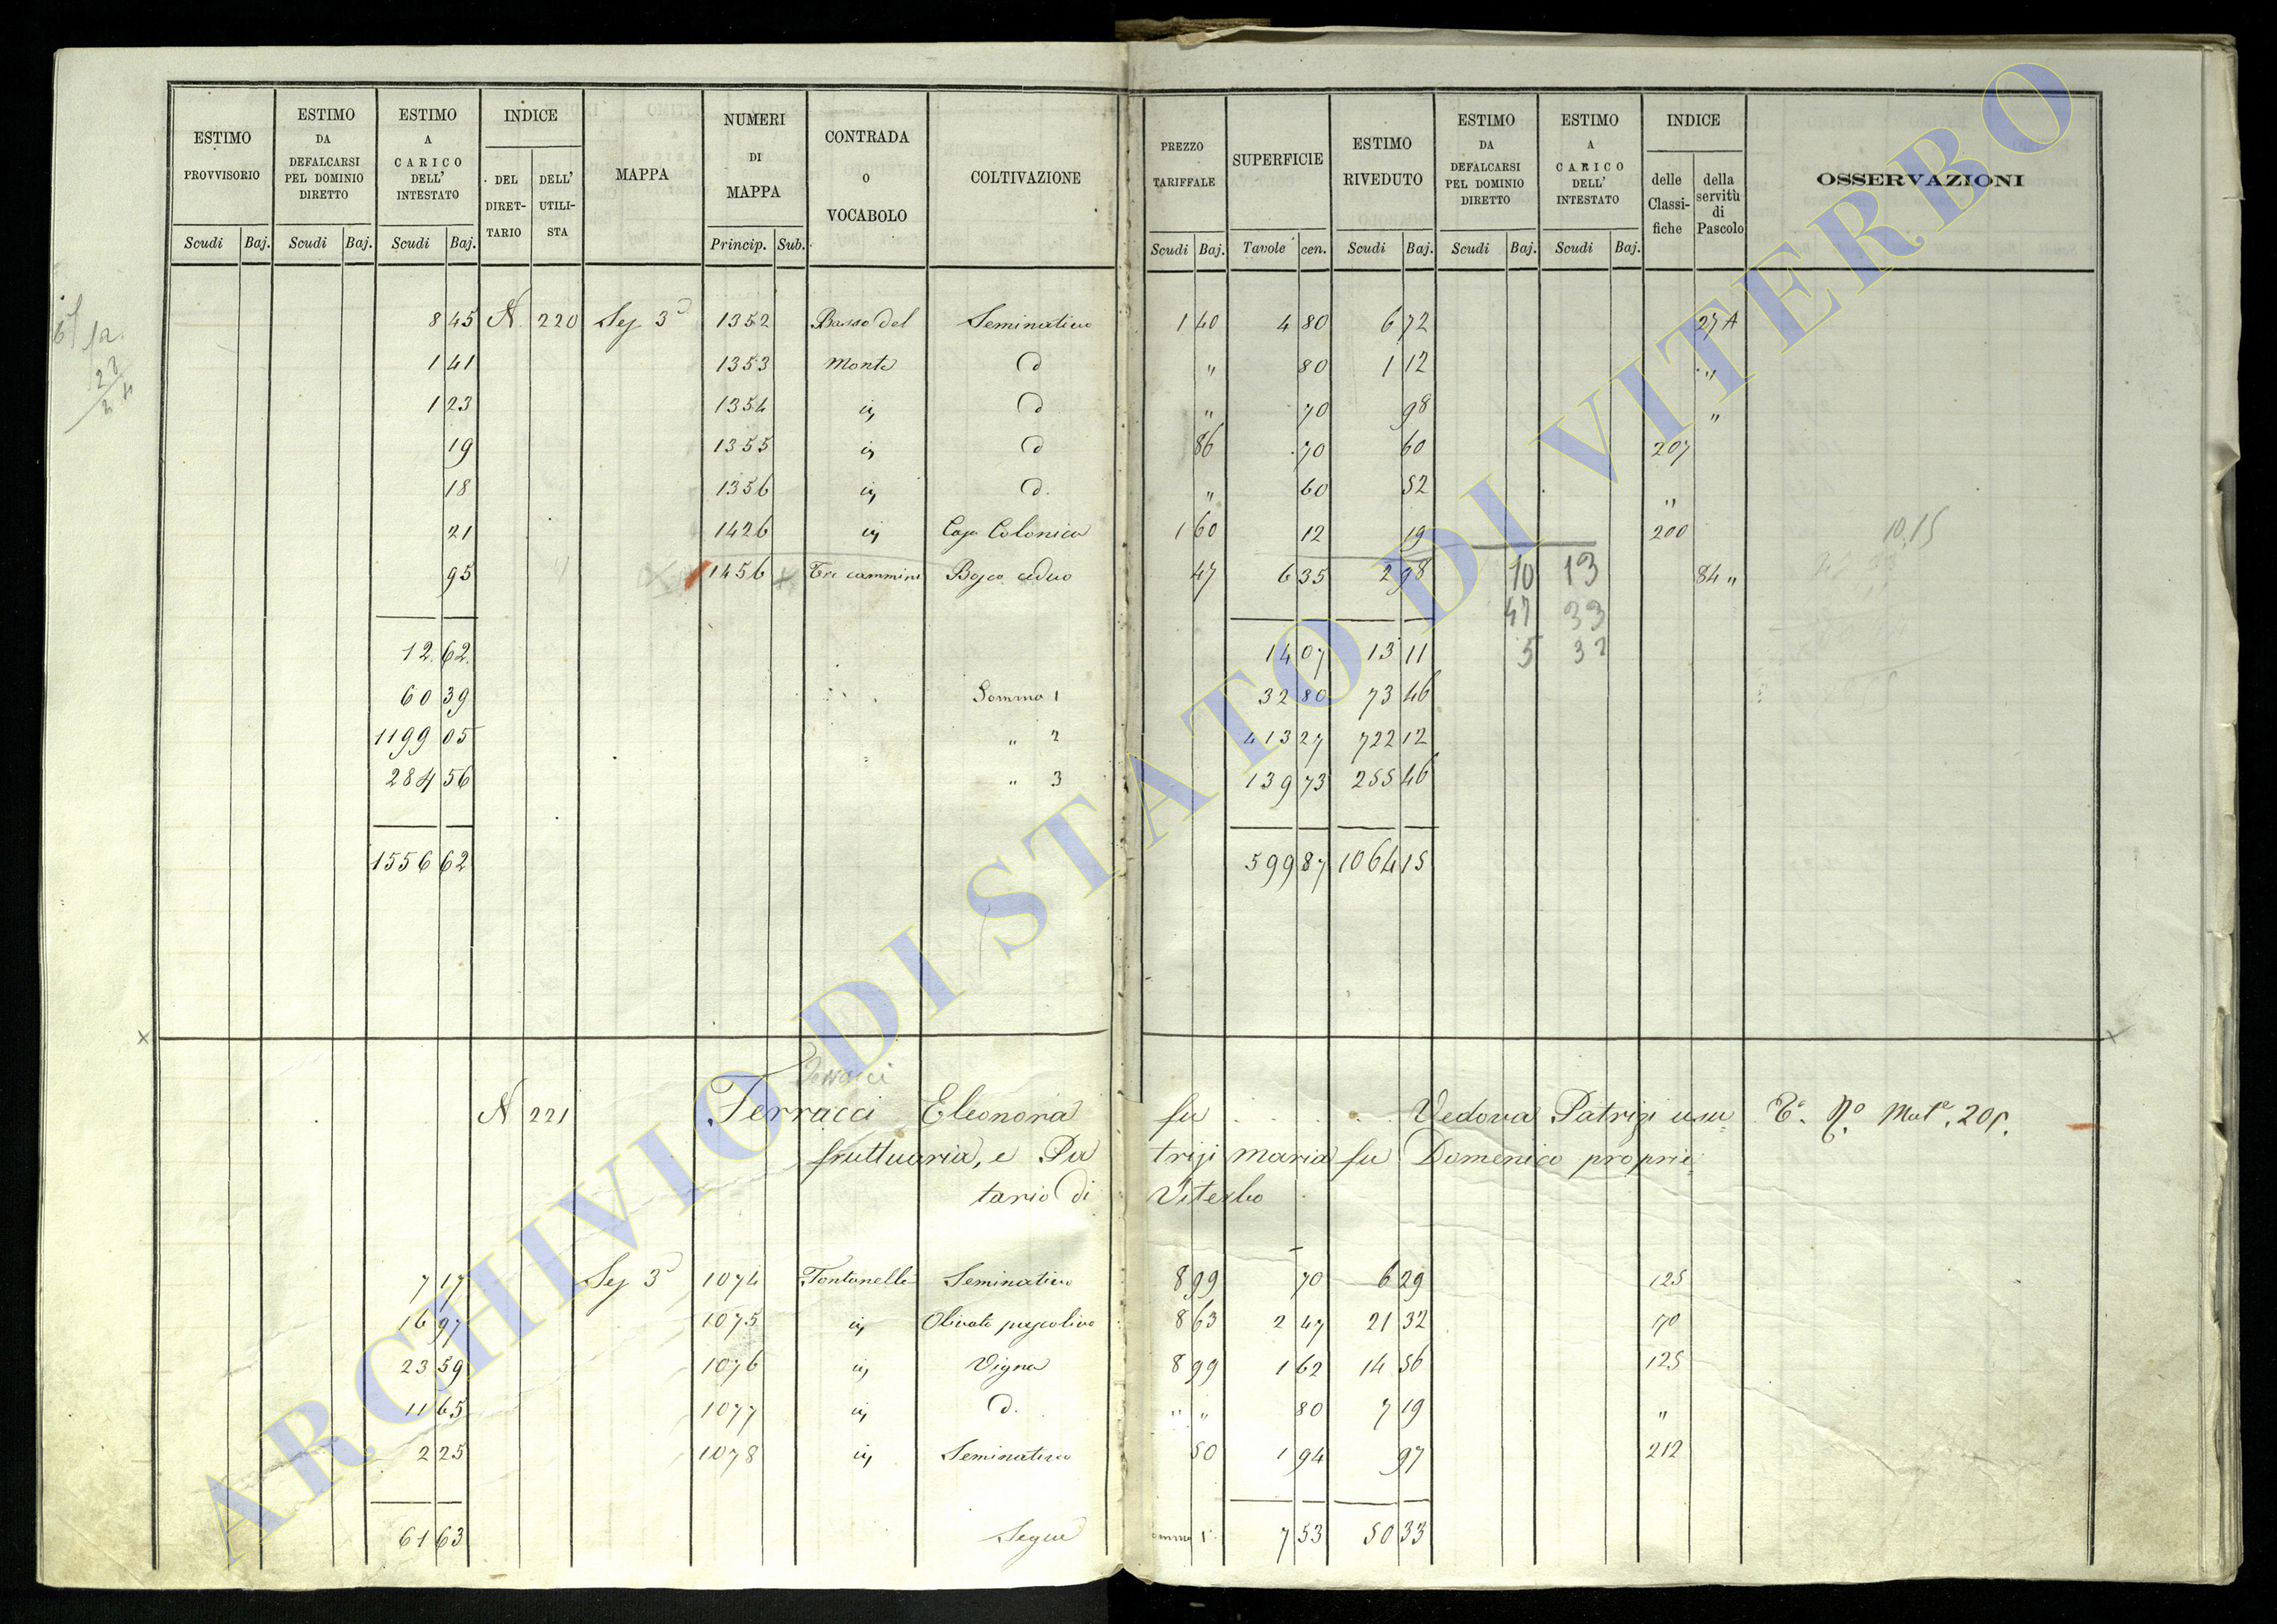 ESTIMO PROVVISORIO | ESTIMO DA DEFALCARSI PEL DOMINIO DIRETTO | ESTIMO A CARICO DELL' INTESTATO | INDICE DEL DIRET-TARIO | DELL' UTILI-STA | MAPPA | NUMERI DI MAPPA | CONTRADA O VOCABOLO | COLTIVAZIONE | PREZZO TARIFFALE | SUPERFICIE | ESTIMO RIVEDUTO | ESTIMO DA DEFALCARSI PEL DOMINIO DIRETTO | ESTIMO A CARICO DELL' INTESTATO | INDICE delle Classi-fiche | della servitù di Pascolo | OSSERVAZIONI
Scudi | Baj. | Scudi | Baj. | Scudi | Baj. | Princip. | Sub. | Scudi | Baj. | Tavole | cen. | Scudi | Baj. | Scudi | Baj. | Scudi | Baj.
8 45 N 220 Sez 3ª 1352 Basso del Seminativo 1 40 4 80 6 72 27 A
1 41 1353 Monte d " 80 1 12 "
1 23 1354 id d " 70 98 "
19 1355 id d 86 70 60 207
18 1356 id d. " 60 52 "
21 1426 id Casa Colonica 1 60 12 19 200 10.15
95 1456 Tre cammini Bosco ceduo 47 6 35 2 98 10 13 84 "
47 33
12 62 14 07 13 11 5 32
60 39 Somma 1 32 80 73 46
1199 05 " 2 413 27 722 12
284 56 " 3 139 73 255 46
1556 62 599 87 1064 15
N 221 Ferracci Eleonora fu Vedova Patrizi usu
fruttuaria, e Pa trizi Maria fu Domenico proprie
tario di Viterbo
7 17 Sez 3ª 1074 Fontanelle Seminativo 8 99 70 6 29 125
16 97 1075 id Olivato pascolivo 8 63 2 47 21 32 70
23 59 1076 id Vigna 8 99 1 62 14 56 125
11 65 1077 id d. " " 80 7 19 "
2 25 1078 id Seminativo 50 1 94 97 212
61 63 Segue omma 1ª 7 53 50 33
ARCHIVIO DI STATO DI VITERBO